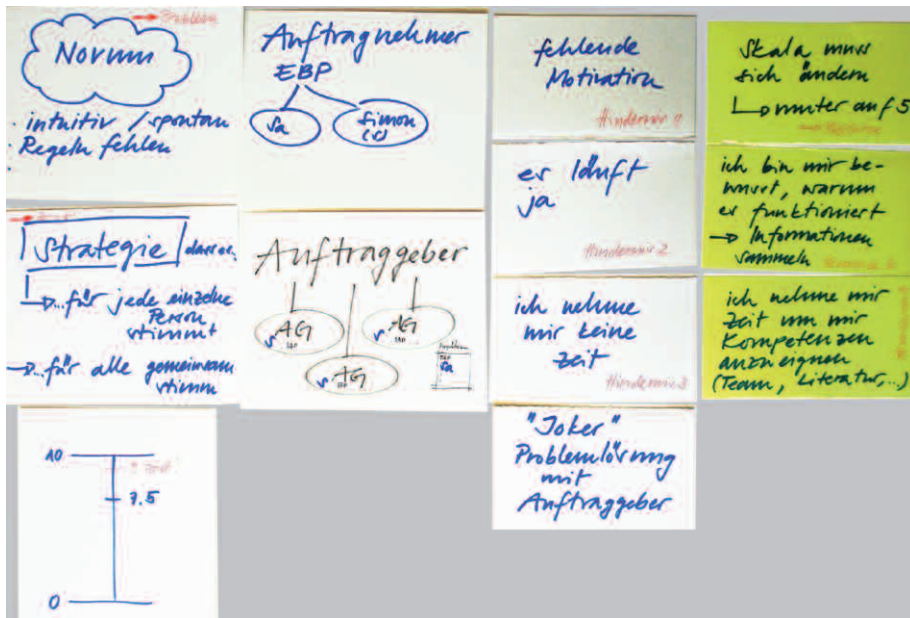 Problem
Norum
· intuitiv / spontan
· Regeln fehlen
Strategie dass es
...für jede einzelne
Person
stimmt
...für alle gemeinsam
stimm
10
7.5
0
Auftragnehmer
EBP
Sa
Simon
(v)
Auftraggeber
AG
AG
AG
Sa
fehlende
Motivation
Hindernis 1
es läuft
ja
Hindernis 2
ich nehme
mir keine
Zeit
Hindernis 3
"Joker"
Problemlösung
mit
Auftraggeber
Skala muss
sich ändern
runter auf 5
ich bin mir be-
wusst, warum
es funktioniert
→ Informationen
sammeln
ich nehme mir
Zeit um mir
Kompetenzen
anzueignen
(Team, Literatur,...)